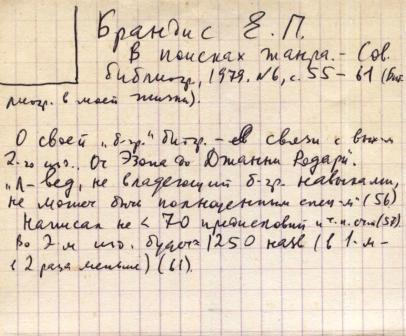 Брандис Е. П.
В поисках жанра. – Сов.
библиогр., 1979. №6, с. 55 – 61 (Биб
лиогр. в моей жизни).
О своей „б-гр." – в связи с вых-м
2-го изд. „От Эзопа до Джанни Родари".
„Л-вед, не владеющий б-гр. навыками,
не может быть полноценным спец-м" (56)
Написал не < 70 предисловий и т. п. (58)
Во 2-м изд. будет 1250 назв. (в 1-м –
в 2 раза меньше) (61).